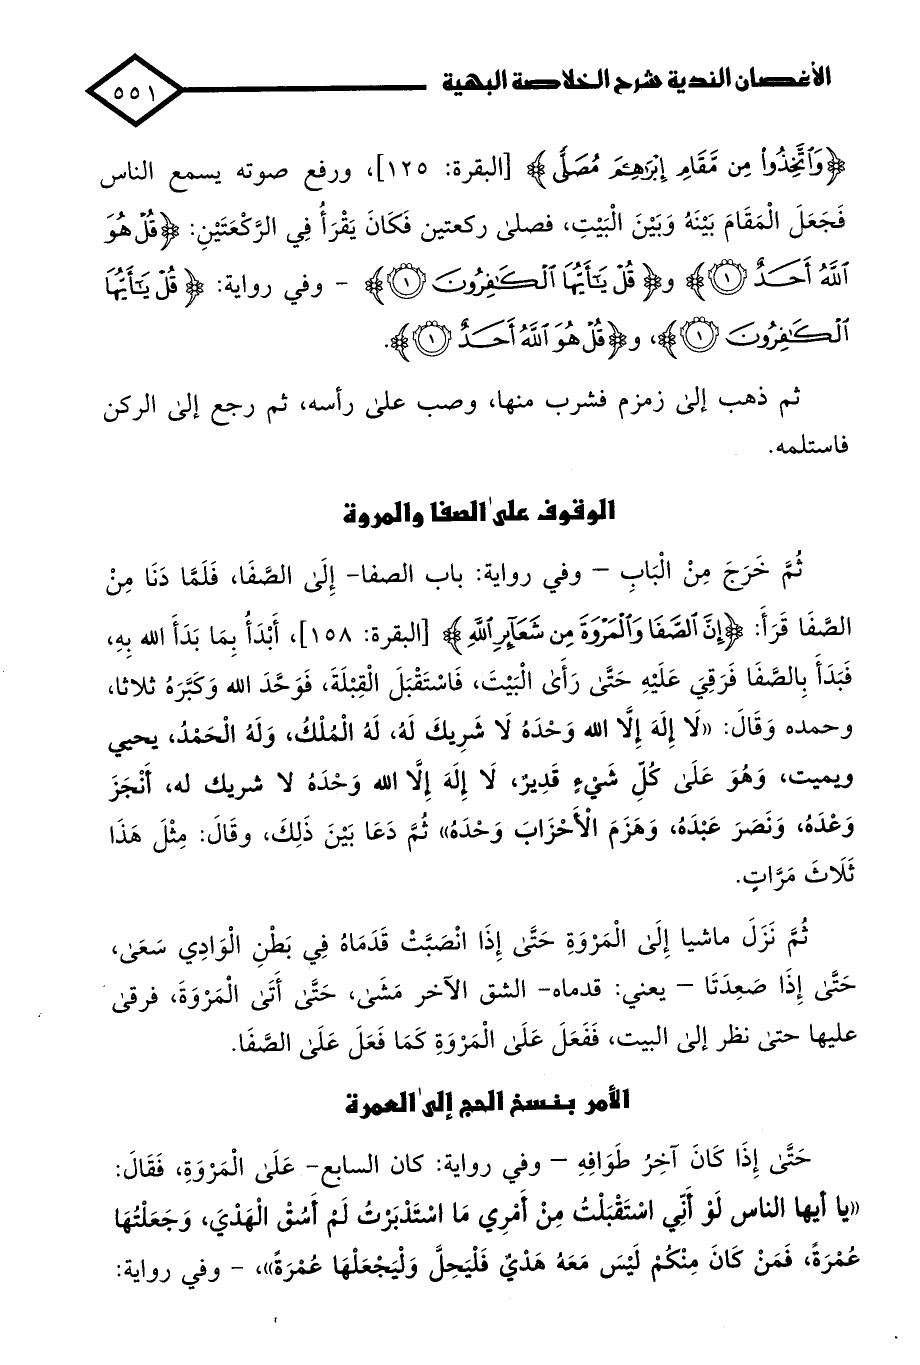 الأغصان الندية شرح الخلاصة البهية
٥٥١
﴿وَٱتَّخِذُواْ مِن مَّقَامِ إِبۡرَٰهِـۧمَ مُصَلّٗى﴾ [البقرة: ١٢٥]، ورفع صوته يسمع الناس
فَجَعَلَ الْمَقَامَ بَيْنَهُ وَبَيْنَ الْبَيْتِ، فصلى ركعتين فَكَانَ يَقْرَأُ فِي الرَّكْعَتَيْنِ: ﴿قُلۡ هُوَ
ٱللَّهُ أَحَدٌ ١﴾ و﴿قُلۡ يَٰٓأَيُّهَا ٱلۡكَٰفِرُونَ ١﴾ - وفي رواية: ﴿قُلۡ يَٰٓأَيُّهَا
ٱلۡكَٰفِرُونَ ١﴾، و﴿قُلۡ هُوَ ٱللَّهُ أَحَدٌ ١﴾.
ثم ذهب إلى زمزم فشرب منها، وصب على رأسه، ثم رجع إلى الركن
فاستلمه.
الوقوف على الصفا والمروة
ثُمَّ خَرَجَ مِنْ الْبَابِ – وفي رواية: باب الصفا- إِلَى الصَّفَا، فَلَمَّا دَنَا مِنْ
الصَّفَا قَرَأَ: ﴿إِنَّ ٱلصَّفَا وَٱلۡمَرۡوَةَ مِن شَعَآئِرِ ٱللَّهِ﴾ [البقرة: ١٥٨]، أَبْدَأُ بِمَا بَدَأَ الله بِهِ،
فَبَدَأَ بِالصَّفَا فَرَقِيَ عَلَيْهِ حَتَّى رَأَى الْبَيْتَ، فَاسْتَقْبَلَ الْقِبْلَةَ، فَوَحَّدَ الله وَكَبَّرَهُ ثلاثا،
وحمده وَقَالَ: «لَا إِلَهَ إِلَّا الله وَحْدَهُ لَا شَرِيكَ لَهُ، لَهُ الْمُلْكُ، وَلَهُ الْحَمْدُ، يحيي
ويميت، وَهُوَ عَلَى كُلِّ شَيْءٍ قَدِيرٌ، لَا إِلَهَ إِلَّا الله وَحْدَهُ لا شريك له، أَنْجَزَ
وَعْدَهُ، وَنَصَرَ عَبْدَهُ، وَهَزَمَ الْأَحْزَابَ وَحْدَهُ» ثُمَّ دَعَا بَيْنَ ذَلِكَ، وقَالَ: مِثْلَ هَذَا
ثَلَاثَ مَرَّاتٍ.
ثُمَّ نَزَلَ ماشيا إِلَى الْمَرْوَةِ حَتَّى إِذَا انْصَبَّتْ قَدَمَاهُ فِي بَطْنِ الْوَادِي سَعَى،
حَتَّى إِذَا صَعِدَتَا – يعني: قدماه- الشق الآخر مَشَى، حَتَّى أَتَى الْمَرْوَةَ، فرقى
عليها حتى نظر إلى البيت، فَفَعَلَ عَلَى الْمَرْوَةِ كَمَا فَعَلَ عَلَى الصَّفَا.
الأمر بفسخ الحج إلى العمرة
حَتَّى إِذَا كَانَ آخِرُ طَوَافِهِ – وفي رواية: كان السابع- عَلَى الْمَرْوَةِ، فَقَالَ:
«يا أيها الناس لَوْ أَنِّي اسْتَقْبَلْتُ مِنْ أَمْرِي مَا اسْتَدْبَرْتُ لَمْ أَسُقْ الْهَدْيَ، وَجَعَلْتُهَا
عُمْرَةً، فَمَنْ كَانَ مِنْكُمْ لَيْسَ مَعَهُ هَدْيٌ فَلْيَحِلَّ وَلْيَجْعَلْهَا عُمْرَةً»، – وفي رواية: